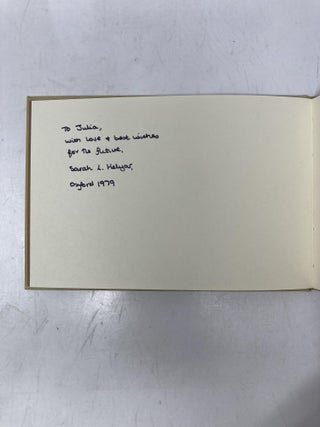 To Julia,
with love & best wishes
for the future,
Sarah L. Helyar,
Oxford 1979